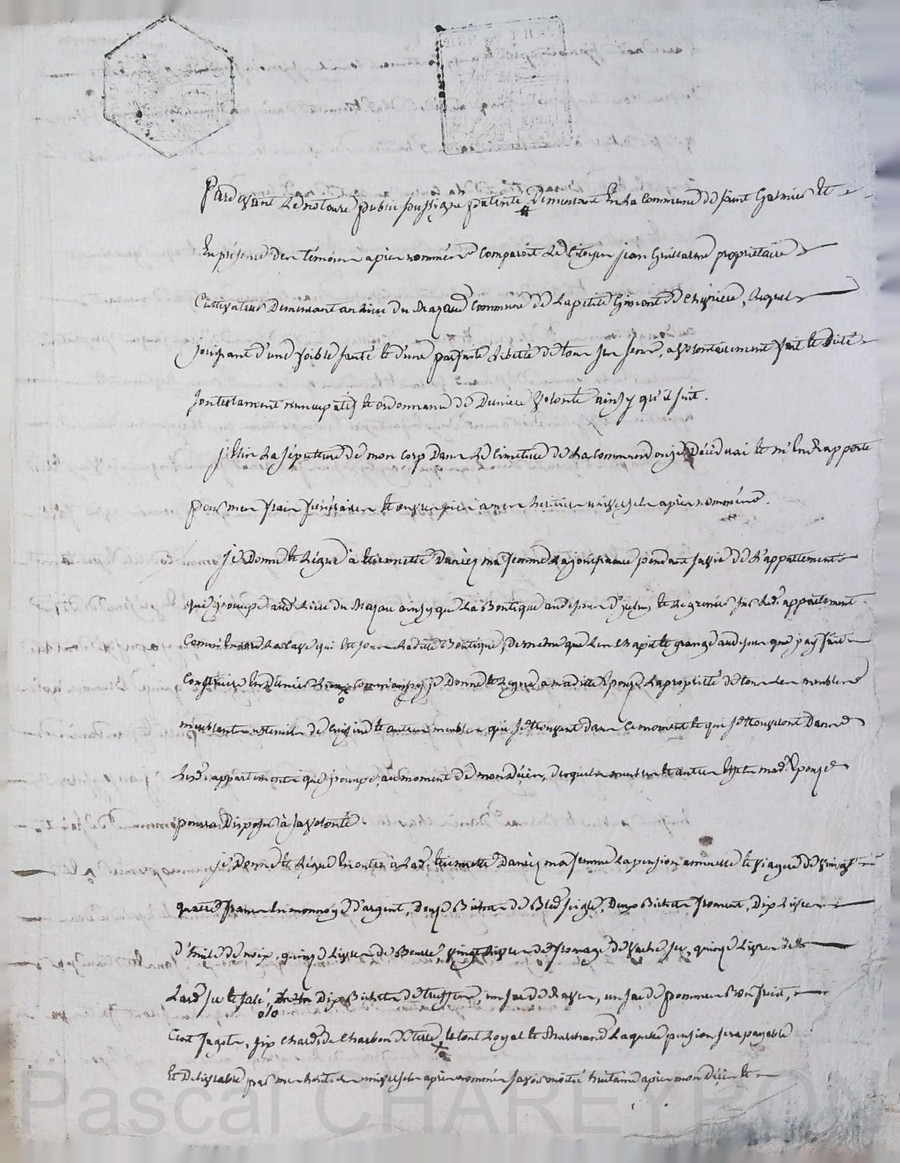 Pardevant Le notaire public soussigné patenté Demeurant En La Commune de saint et
En présence des témoins apres nommés Comparoit Le Citoyen jean Guillaume propriétaire
Cultivateur Demeurant au Lieu du Commune de La Lequel
jouissant d'une foible santé et d'une parfaite Liberté de tous ses sens, a volontairement fait et dicté
son testament nuncupatif et ordonnance de Derniere volonté ainsy qu'il suit.
j'Elire La sépulture de mon corp Dans Le Cimetiere de La Commune ou je Décéderai et m'En Rapporte
pour mes frais funéraires et œuvres pies a mes heritiers universels apres nommés.
je Donne et Légue à ma femme La jouissance pendant sa vie de L'appartement
que j'occupe audit Lieu du ainsy que La Boutique et Le grenier sur Led. appartement
La Cave qui Est sous Ladite Boutique, De meme que Le et grange que j'ay fait
Construire je Donne et Légue a madite Epouse La propriété de tous Les meubles
meublants ustensiles de Cuisine et autres meubles qui se trouvent dans Ce moment et qui se trouveront Dans
Lesd. appartements que j'occupe au moment de mon Décès, desquels meubles et autres Effets mad. Epouse
pourra Disposer à sa volonté
je Donne et Légue En outre à Lad. ma femme La pension annuelle et viagere de vingt
quatre francs En monnoye d'argent, Bichets de Bled seigle, Deux Bichets froment, Dix Livres
d'huile de noix, quinze Livres de Beurre, vingt Livres de fromage de vache sec, quinze Livres de
Lard sec et salé, Dix Bichets de truffes, un sac de Raves, un sac de pommes Bon fruit,
Cent fagots, six Chards de Charbon de terre, Le tout Loyal et Marchand Laquelle pension sera payable
Et Delivrable par mes heritiers universels apres nommés savoir moitié huitaine apres mon Décès et
Pascal CHAREYRON